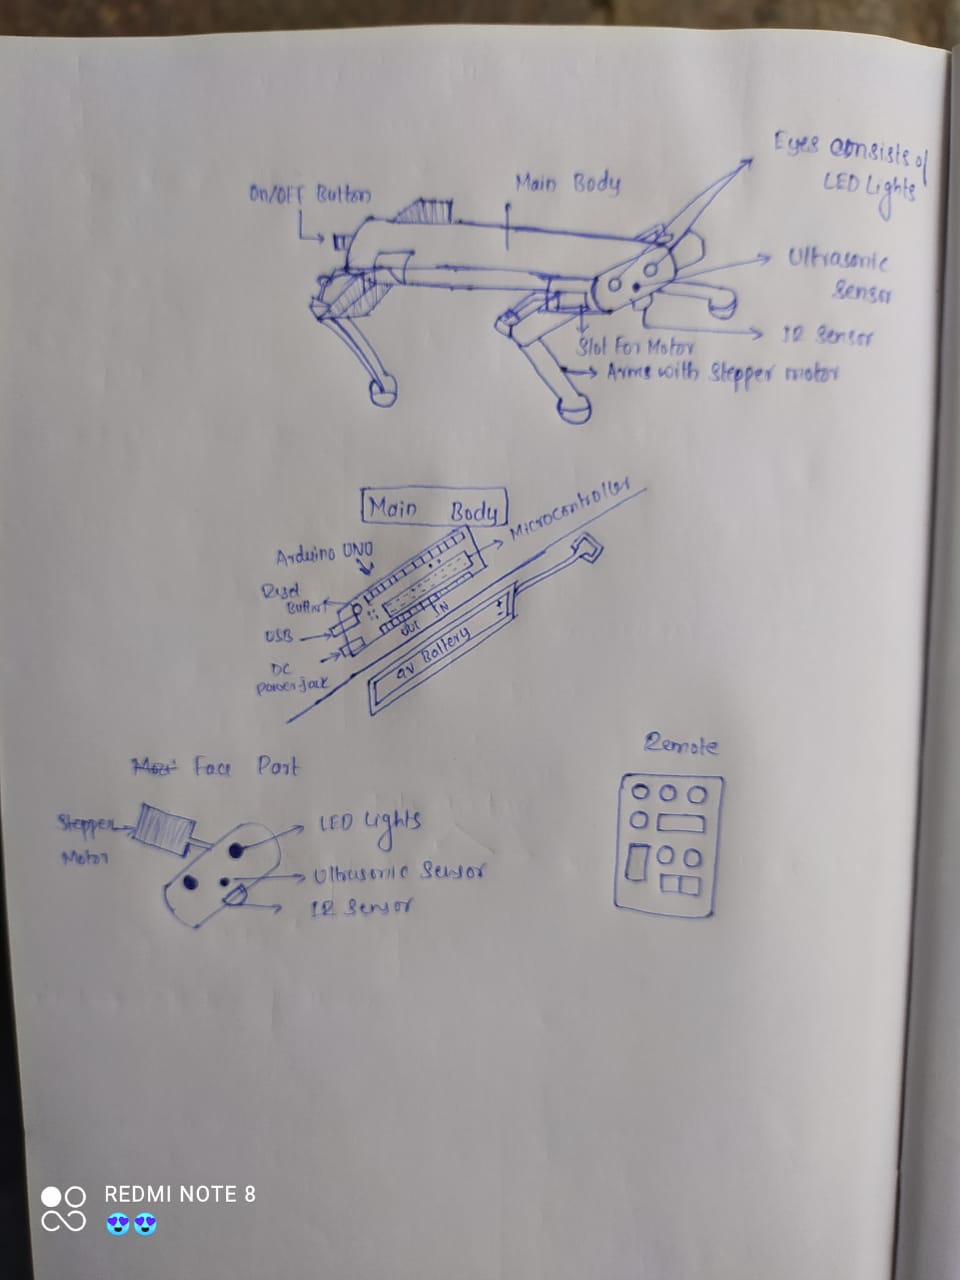 On/OFF Button
Main Body
Eyes consists of
LED Lights
Ultrasonic
Sensor
IR Sensor
Slot For Motor
Arms with Stepper motor
Main Body
Arduino UNO
Microcontroller
Reset
Button
USB
DC
Power jack
OUT IN
9V Battery
+
-
Face Part
Stepper
Motor
LED Lights
Ultrasonic Sensor
IR Sensor
Remote
REDMI NOTE 8
😍😍